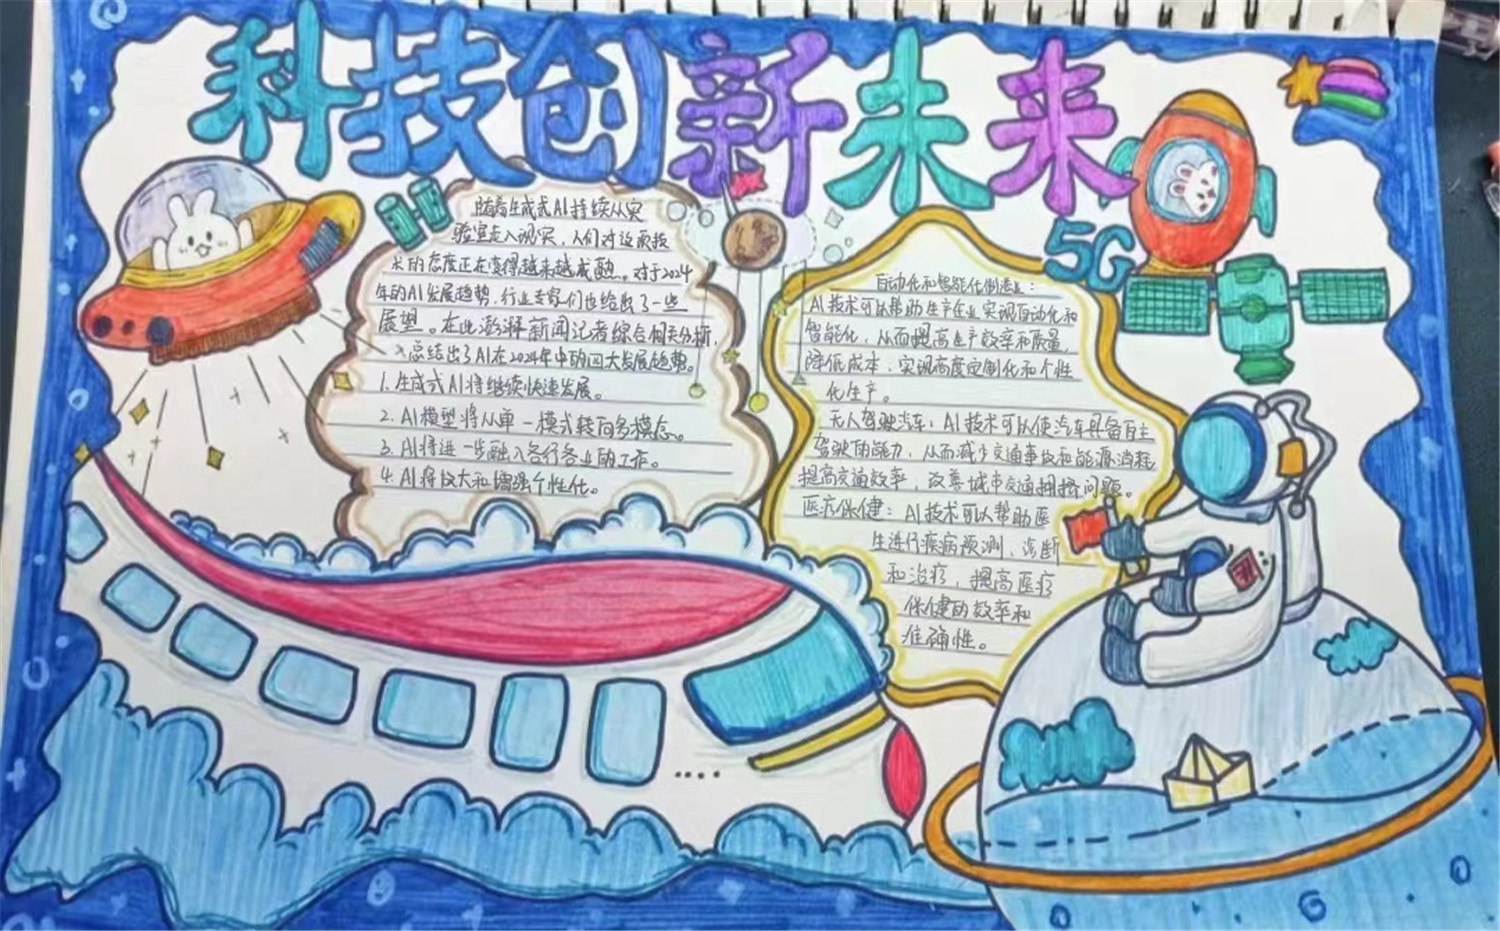 科技创新未来
随着生成式AI持续从实
验室走入现实，人们对这项技
术的态度正在变得越来越成熟。对于2024
年的AI发展趋势，行业专家们也给出了一些
展望。在此澎湃新闻记者综合相关分析，
总结出了AI在2024年中的四大发展趋势。
1.生成式AI将继续快速发展。
2.AI模型将从单一模式转向多模态。
3.AI将进一步融入各行各业的工作。
4.AI将放大和增强个性化。
5G
自动化和智能化制造业：
AI技术可以帮助生产企业实现自动化和
智能化，从而提高生产效率和质量，
降低成本，实现高度定制化和个性
化生产。
无人驾驶汽车：AI技术可以使汽车具备自主
驾驶的能力，从而减少交通事故和能源消耗
提高交通效率，改善城市交通拥挤问题。
医疗保健：AI技术可以帮助医
生进行疾病预测、诊断
和治疗，提高医疗
保健的效率和
准确性。